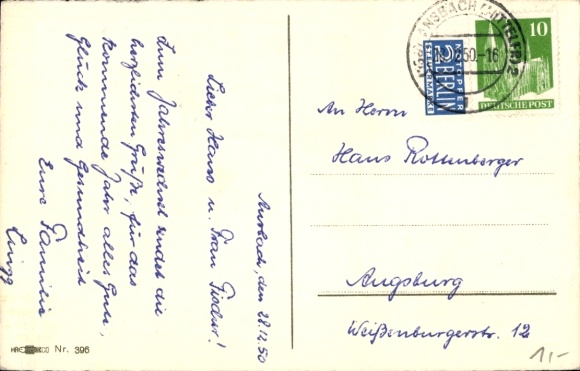 Ansbach, den 28.12.50
Lieber Hans u. Frau Fiedur!
Zum Jahreswechsel sendet die
herzlichsten Grüße, für das
kommende Jahr alles Gute,
Glück und Gesundheit
Eure Familie
Lingg
Nr. 396
ANSBACH (MITTELFR) 2
50.-16
10
DEUTSCHE POST
NOTOPFER
2
BERLIN
STEUERMARKE
An Herrn
Hans Rottenberger
Augsburg
Weißenburgerstr. 12
1,-